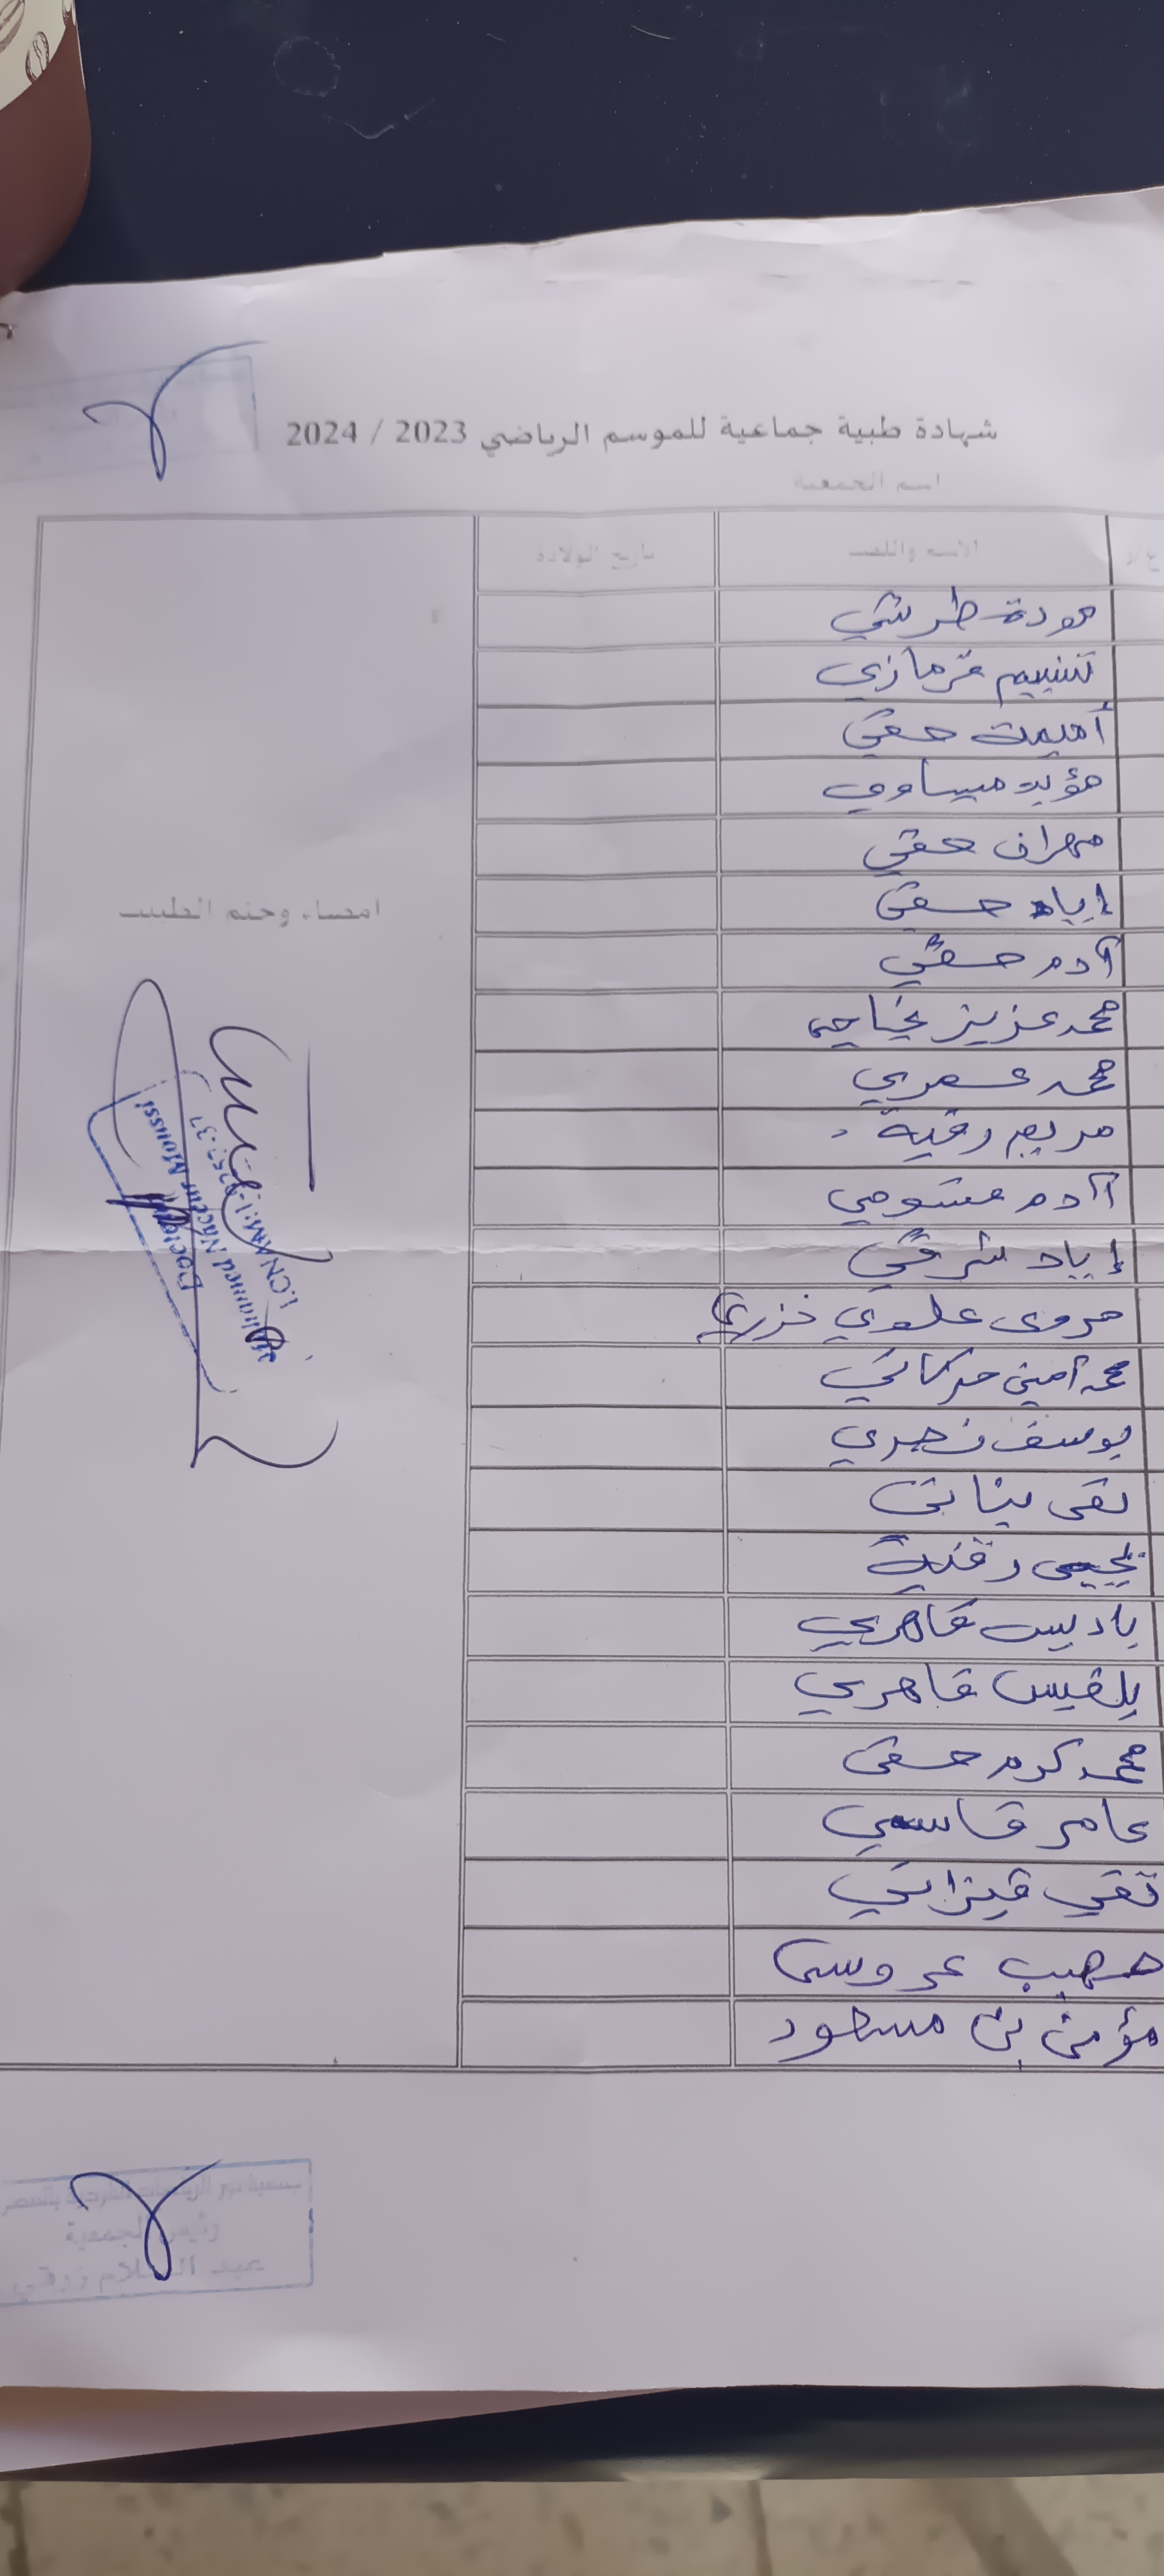 شهادة طبية جماعية للموسم الرياضي 2023 / 2024
اسم الجمعية
الاسم واللقب تاريخ الولادة
مودة طرشي
تسنيم قرمازي
أميمة حقي
مؤيد ميساوي
مهران حقي
إياد حقي
آدم حقي
محمد عزيز
محمد عمري
مريم رقية
آدم عيشوشي
إياد شرقي
مروى علوي
محمد أمين بركاتي
يوسف نصري
تقى بناني
يحيى رقية
باديس قاهري
بلقيس قاهري
محمد كرم حقي
عامر قاسمي
تقي قيزاني
صهيب عروسي
مؤمن بن مسعود
امضاء وختم الطبيب
Docteur
Mohamed Naceur Moussi
رئيس الجمعية
عبد السلام